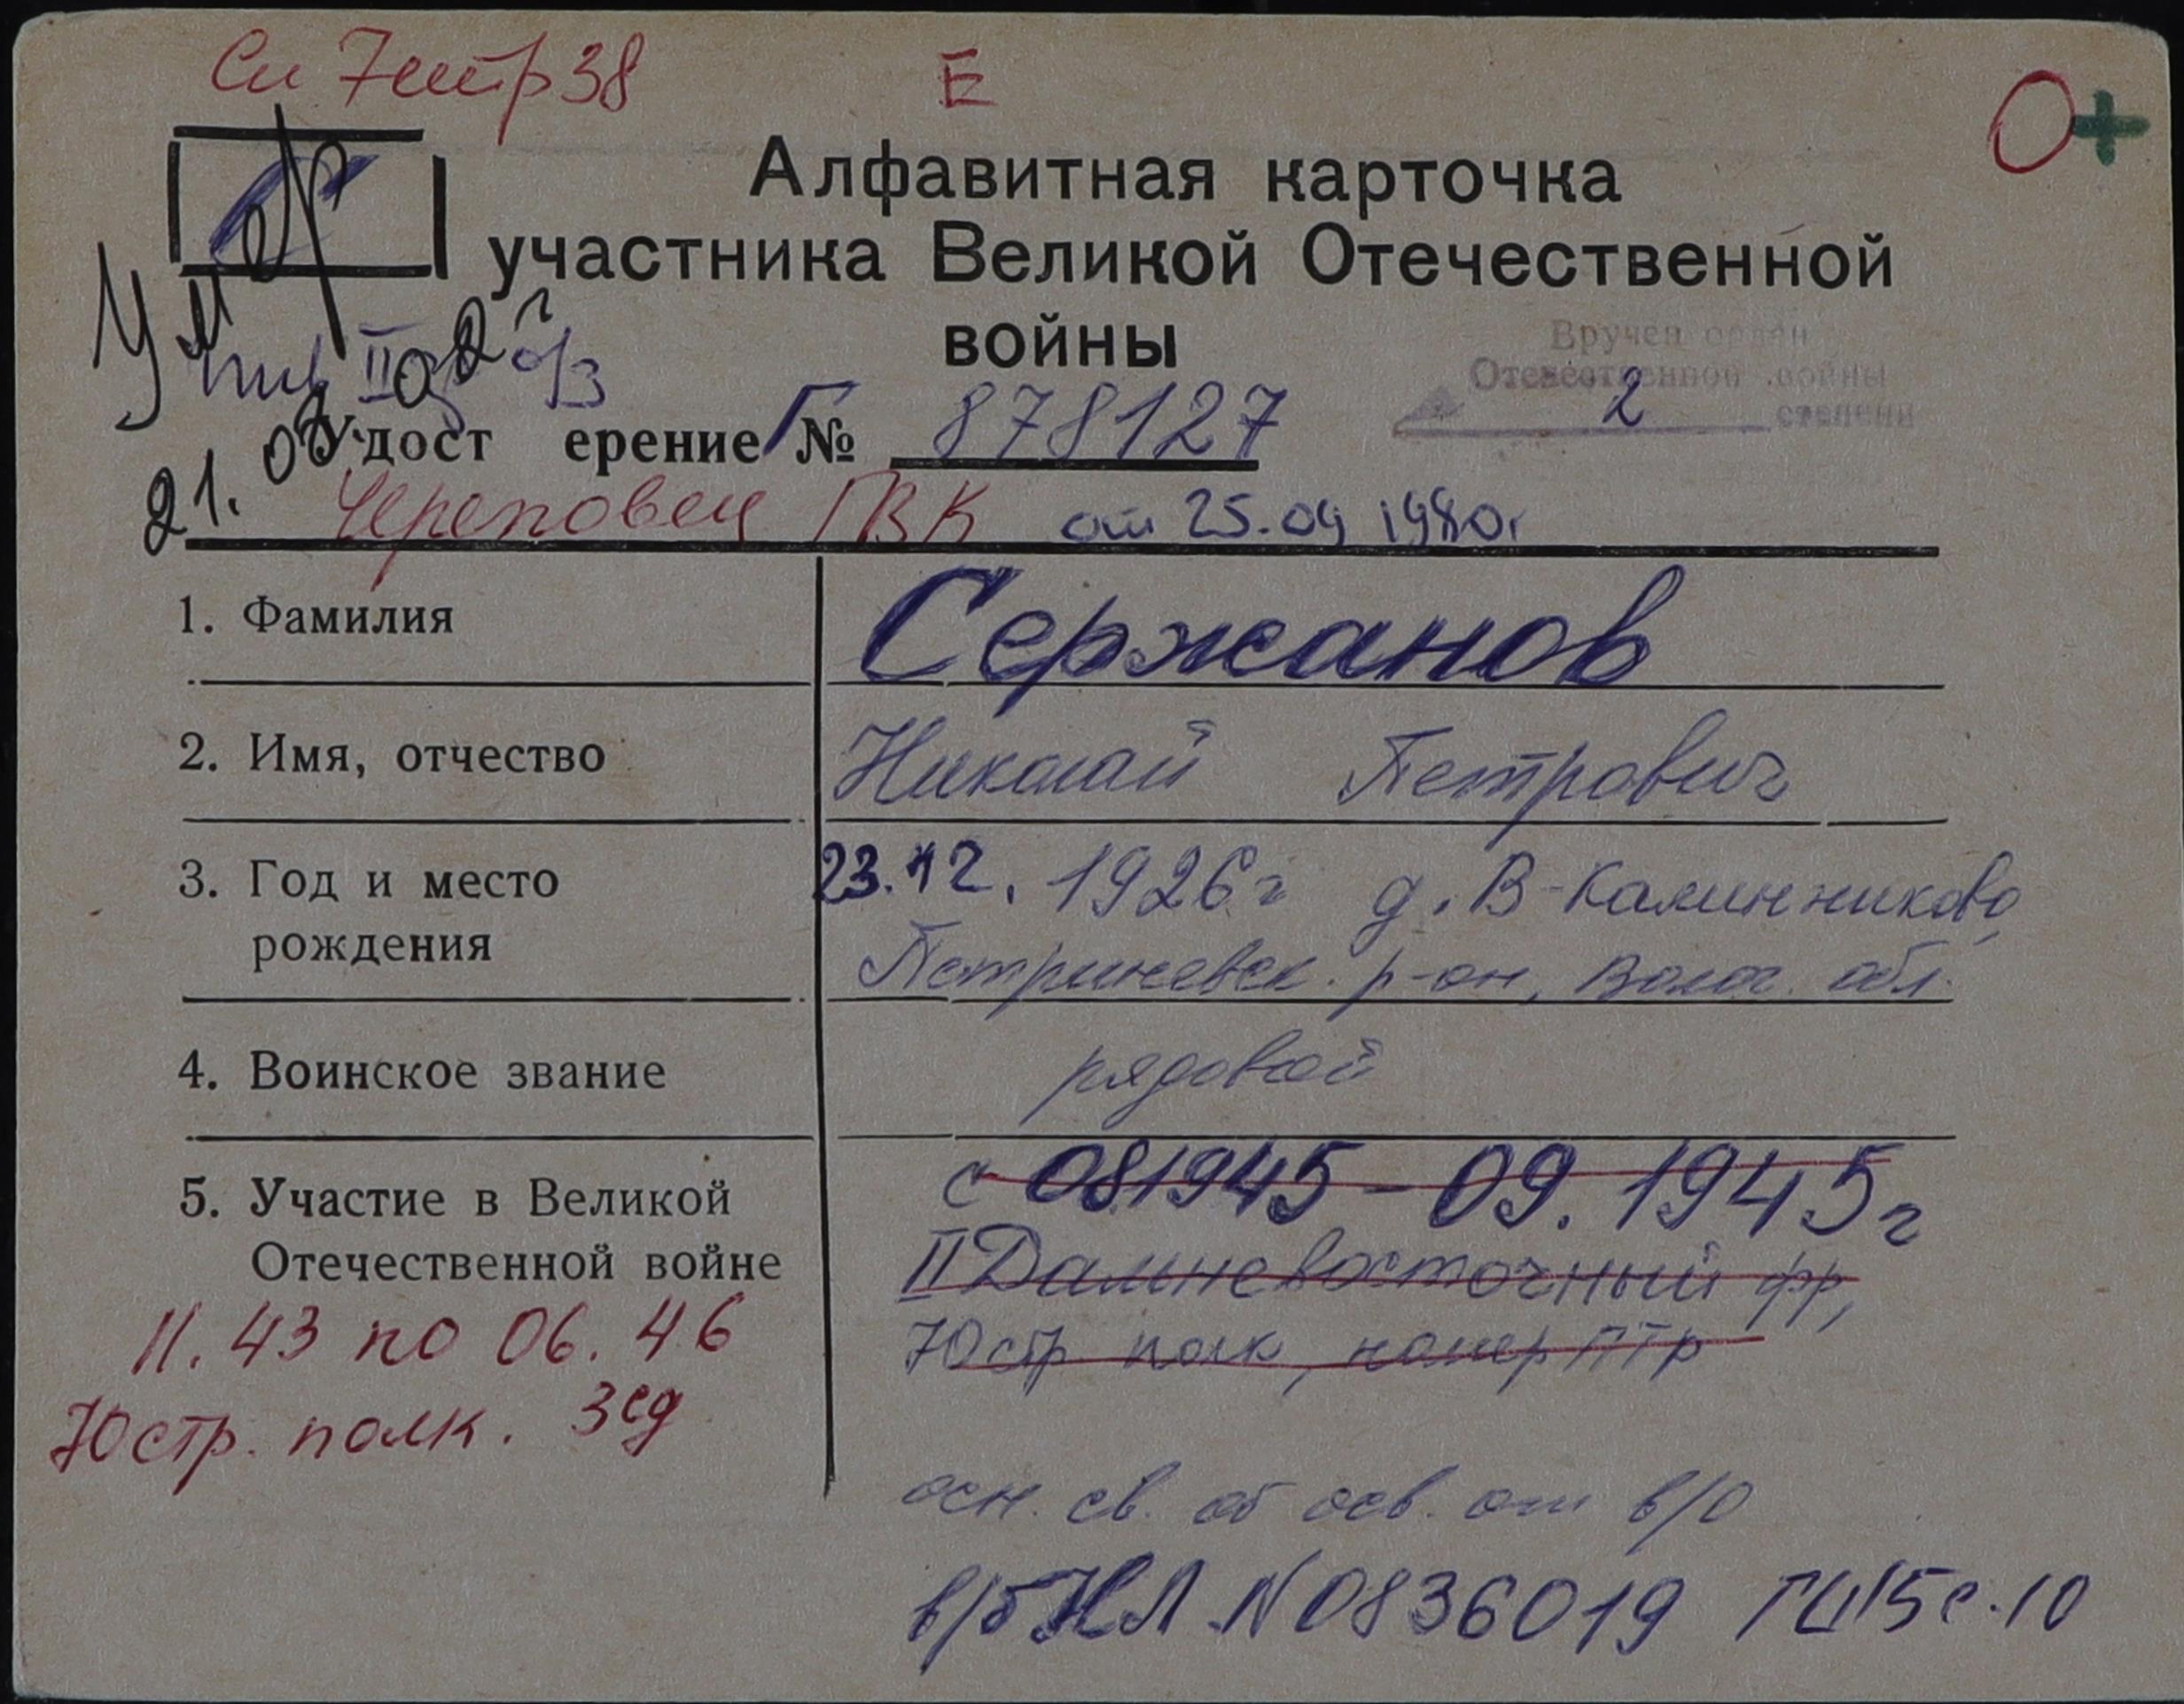 Сп 7 стр 38
Е
О+
Алфавитная карточка
участника Великой Отечественной
войны
Умер
21. 02 г
инв II о/з
Вручен орден
Отечественной войны
2 степени
Удост ерение Г № 878127
Череповец ГВК от 25.09 1980г
1. Фамилия Сержанов
2. Имя, отчество Николай Петрович
3. Год и место 23.12. 1926 г д. В-Калинниково,
рождения Петриневск. р-он, Волог. обл.
4. Воинское звание рядовой
5. Участие в Великой с 08 1945 - 09. 1945 г
Отечественной войне II Дальневосточный фр,
11.43 по 06.46 70 стр полк, номер ПТР
70 стр. полк. 3 сд
осн. св. об осв. от в/о
в/б НЛ N 0836019 ГШ 15 с. 10